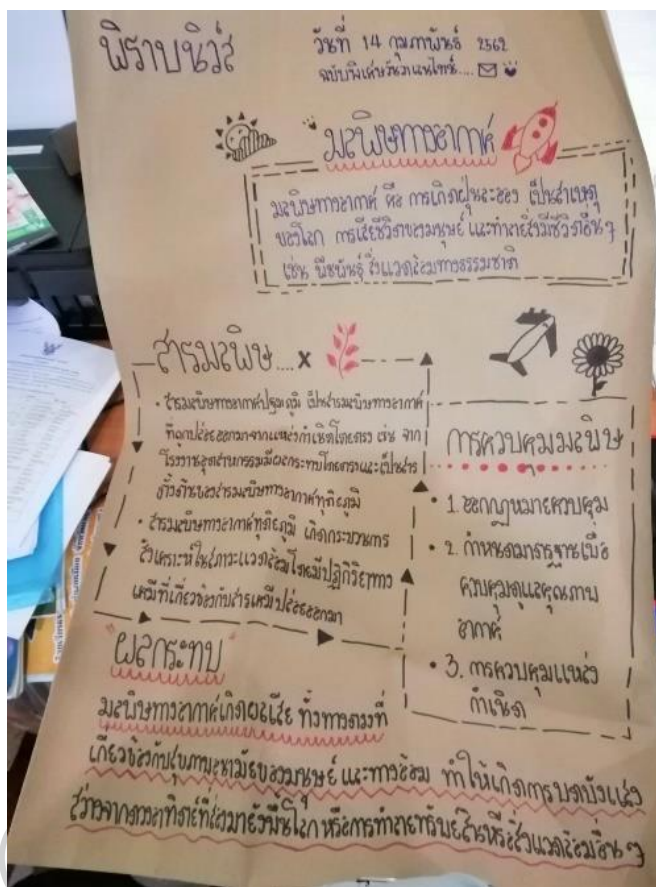 พิราบนิวส์
วันที่ 14 กุมภาพันธ์ 2562
ฉบับพิเศษวันวาเลนไทน์....
มลพิษทางอากาศ
มลพิษทางอากาศ คือ การเกิดฝุ่นละออง เป็นสาเหตุ
ของโลก การเสียชีวิตของมนุษย์ และทำลายสิ่งมีชีวิตอื่น ๆ
เช่น พืชพันธุ์ สิ่งแวดล้อมทางธรรมชาติ
สารมลพิษ....x
• สารมลพิษทางอากาศปฐมภูมิ เป็นสารมลพิษทางอากาศ
ที่ถูกปล่อยออกมาจากแหล่งกำเนิดโดยตรง เช่น จาก
โรงงานอุตสาหกรรมมีผลกระทบโดยตรงและเป็นสาร
ตั้งต้นของสารมลพิษทางอากาศทุติยภูมิ
• สารมลพิษทางอากาศทุติยภูมิ เกิดกระบวนการ
สังเคราะห์ในสภาวะแวดล้อมโดยมีปฏิกิริยาทาง
เคมีที่เกี่ยวข้องกับสารเคมีปล่อยออกมา
การควบคุมมลพิษ
• 1. ออกกฎหมายควบคุม
• 2. กำหนดมาตรฐานเพื่อ
ควบคุมดูแลคุณภาพ
อากาศ
• 3. การควบคุมแหล่ง
กำเนิด
"ผลกระทบ"
มลพิษทางอากาศเกิดผลเสีย ทั้งทางตรงที่
เกี่ยวข้องกับสุขภาพอนามัยของมนุษย์ และทางอ้อม ทำให้เกิดการบดบังแสง
สว่างจากดวงอาทิตย์ที่ส่องมายังพื้นโลก หรือการทำลายทรัพย์สินหรือสิ่งแวดล้อมอื่น ๆ